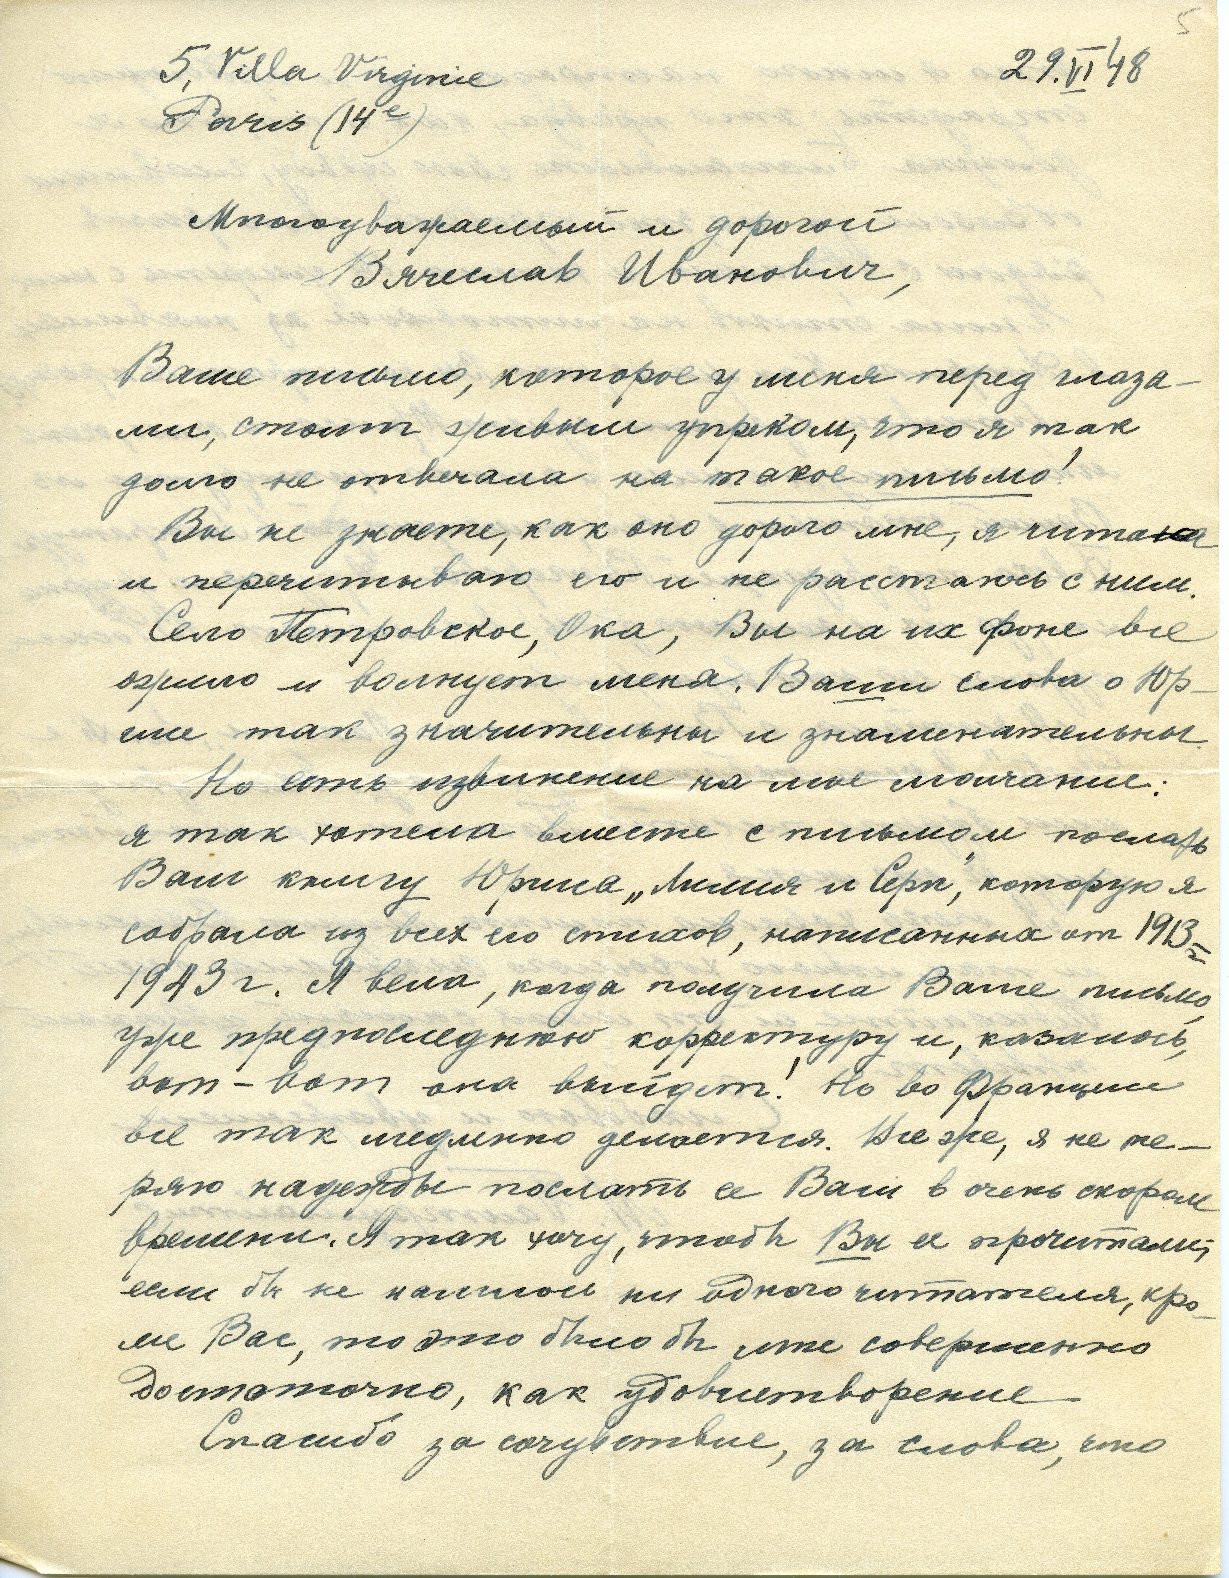 5
5, Villa Virginie
29.VI 48
Paris (14e)
Многоуважаемый и дорогой
Вячеслав Иванович,
Ваше письмо, которое у меня перед глаза-
ми, стоит живым упреком, что я так
долго не отвечала на такое письмо!
Вы не знаете, как оно дорого мне, я читаю
и перечитываю его и не расстаюсь с ним.
Село Петровское, Ока, Вы на их фоне все
ожило и волнует меня. Ваши слова о Юр-
ше так значительны и знаменательны
Но есть извинение на мое молчание:
я так хотела вместе с письмом послать
Вам книгу Юрия „Лилия и Серп", которую я
собрала из всех его стихов, написанных от 1913-
1943 г. Я вела, когда получила Ваше письмо,
уже предпоследнюю корректуру и, казалось,
вот-вот она выйдет! Но во Франции
все так медленно делается. Все же, я не те-
ряю надежды послать ее Вам в очень скором
времени. Я так хочу, чтобы Вы ее прочитали,
если бы не нашлось ни одного читателя, кро-
ме Вас, то это было бы мне совершенно
достаточно, как удовлетворение
Спасибо за сочувствие, за слова, что